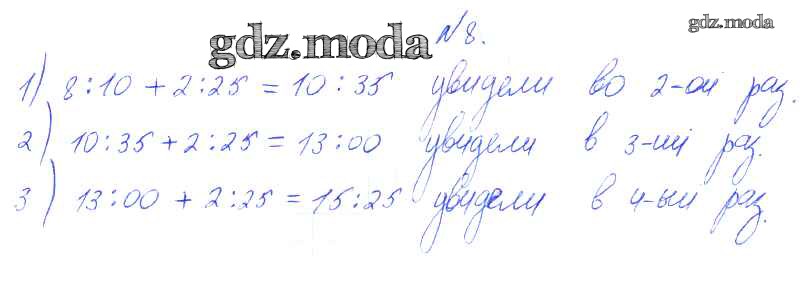 gdz.moda
gdz.moda
№8.
1) 8:10 + 2:25 = 10:35 увидели во 2-ой раз.
2) 10:35 + 2:25 = 13:00 увидели в 3-ий раз.
3) 13:00 + 2:25 = 15:25 увидели в 4-ый раз.